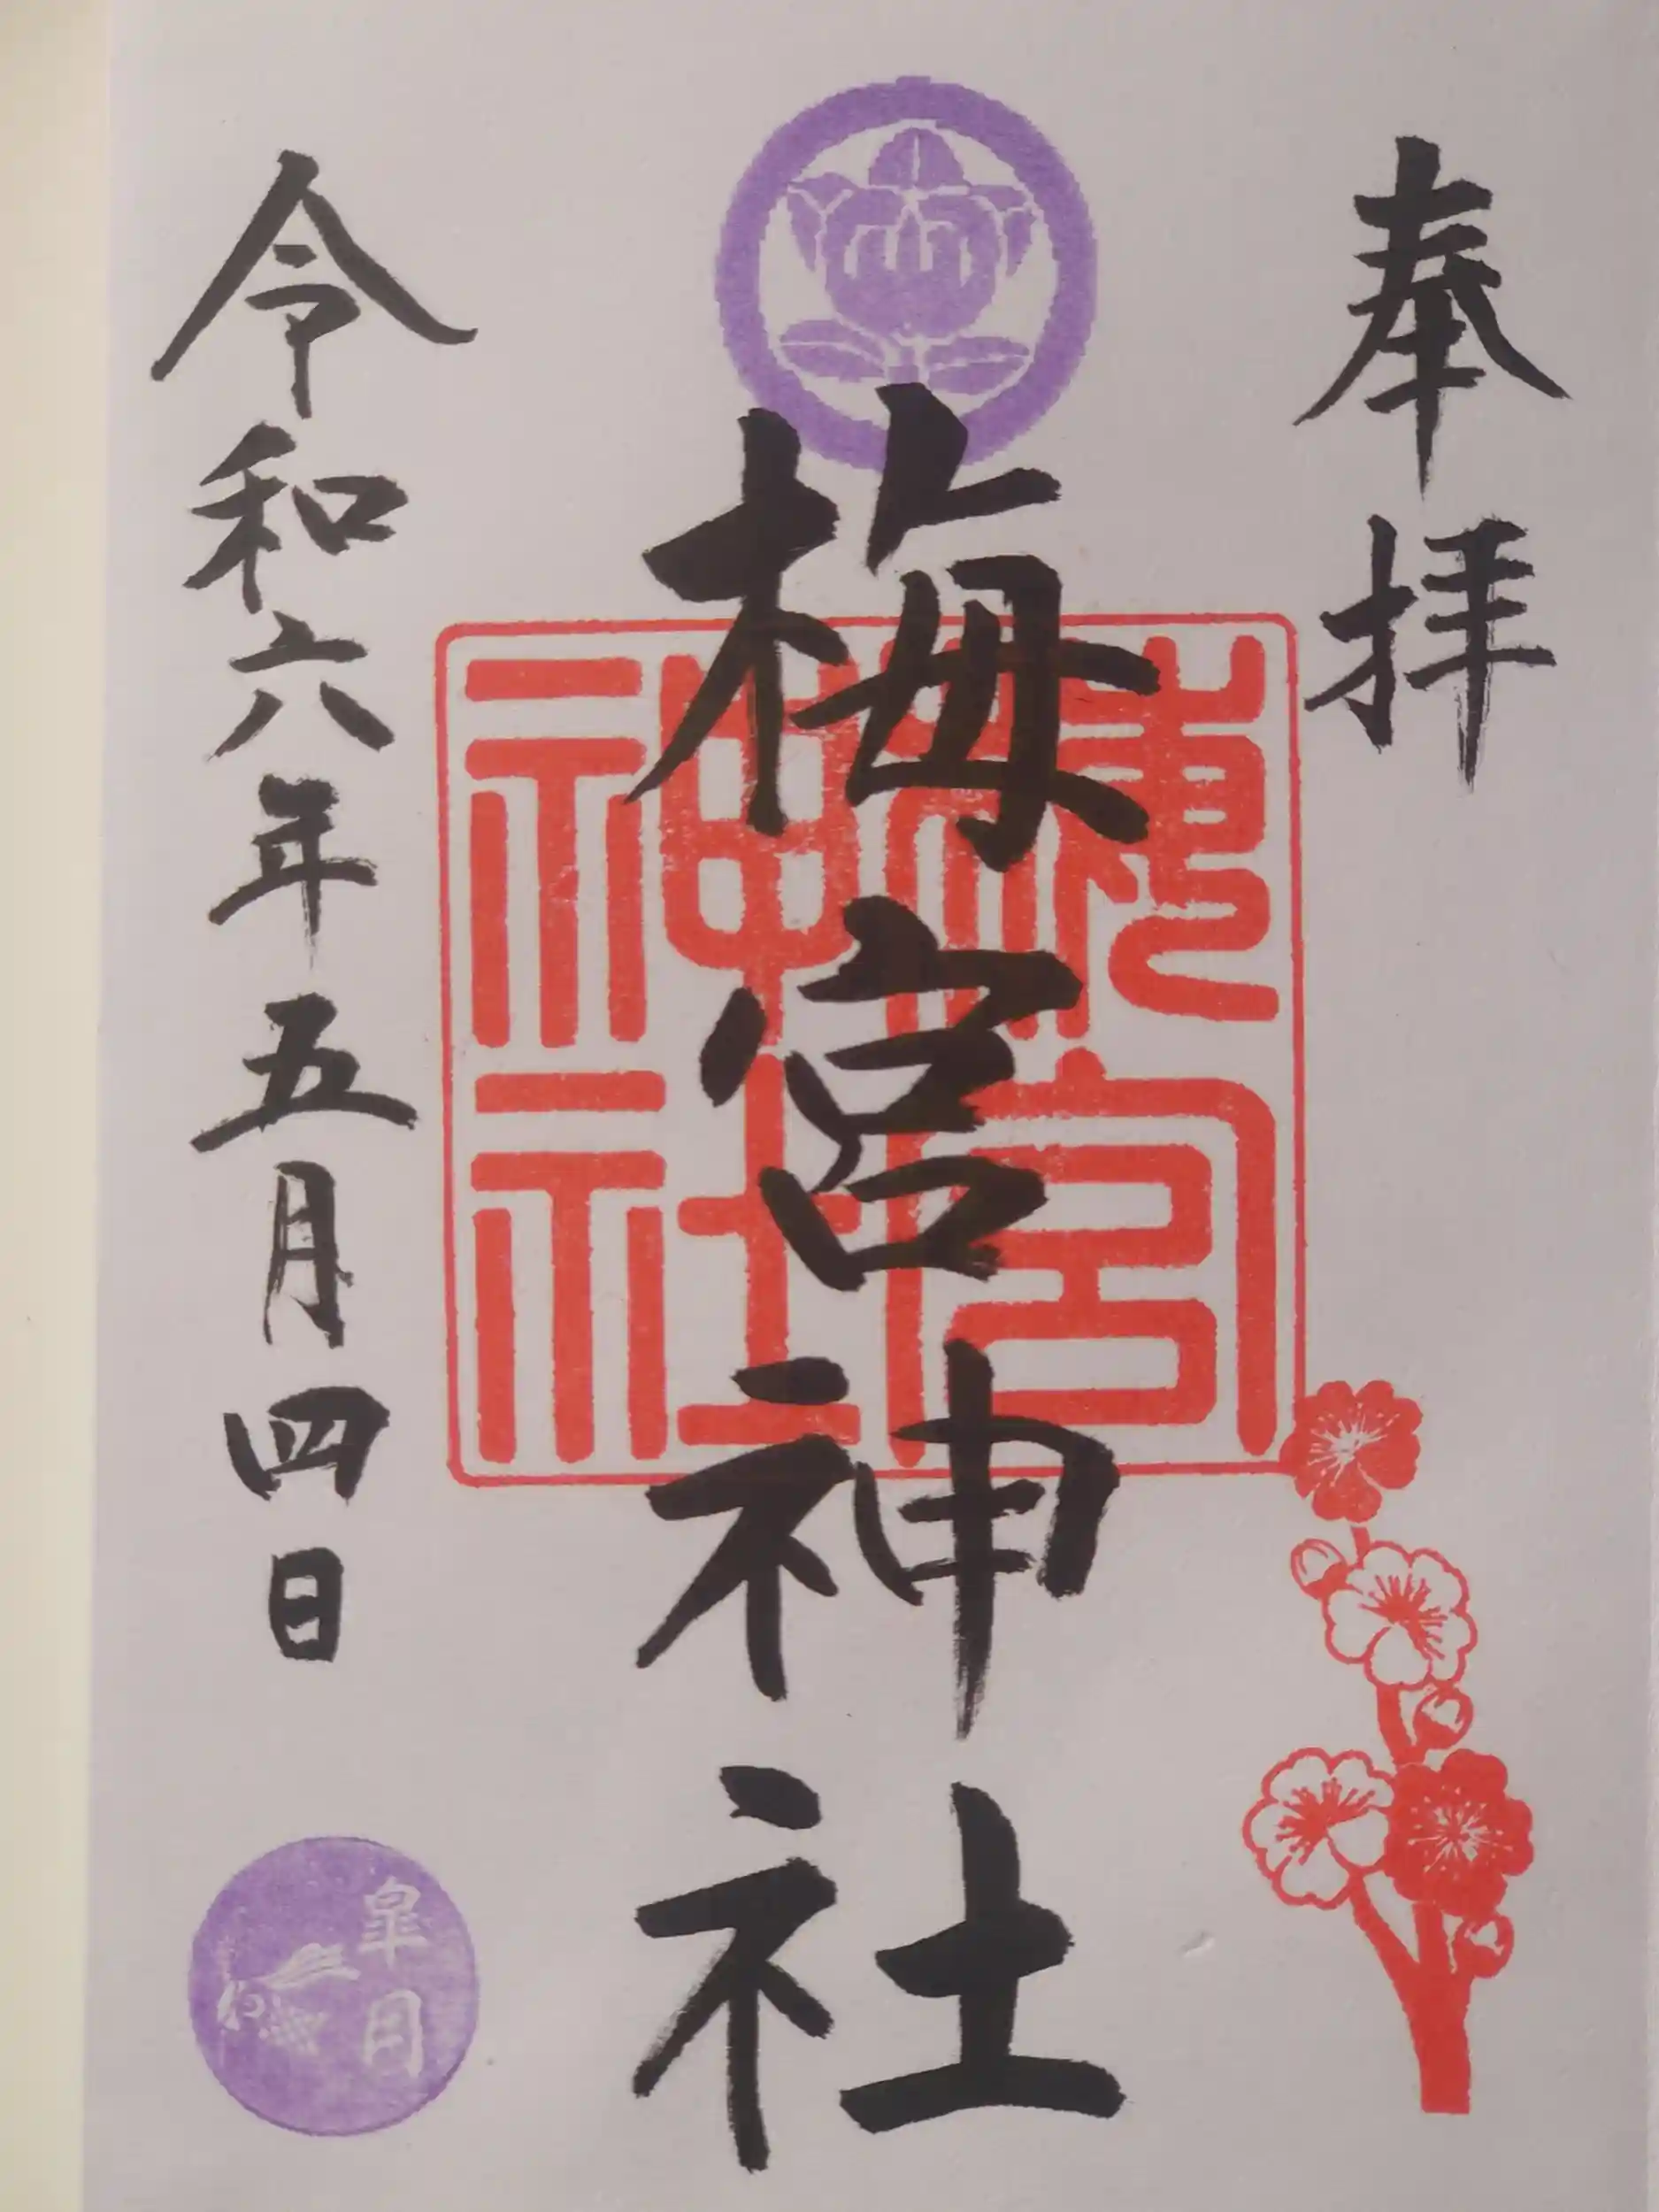 奉拝
梅宮神社
梅宮
神社
令和六年五月四日
皐月